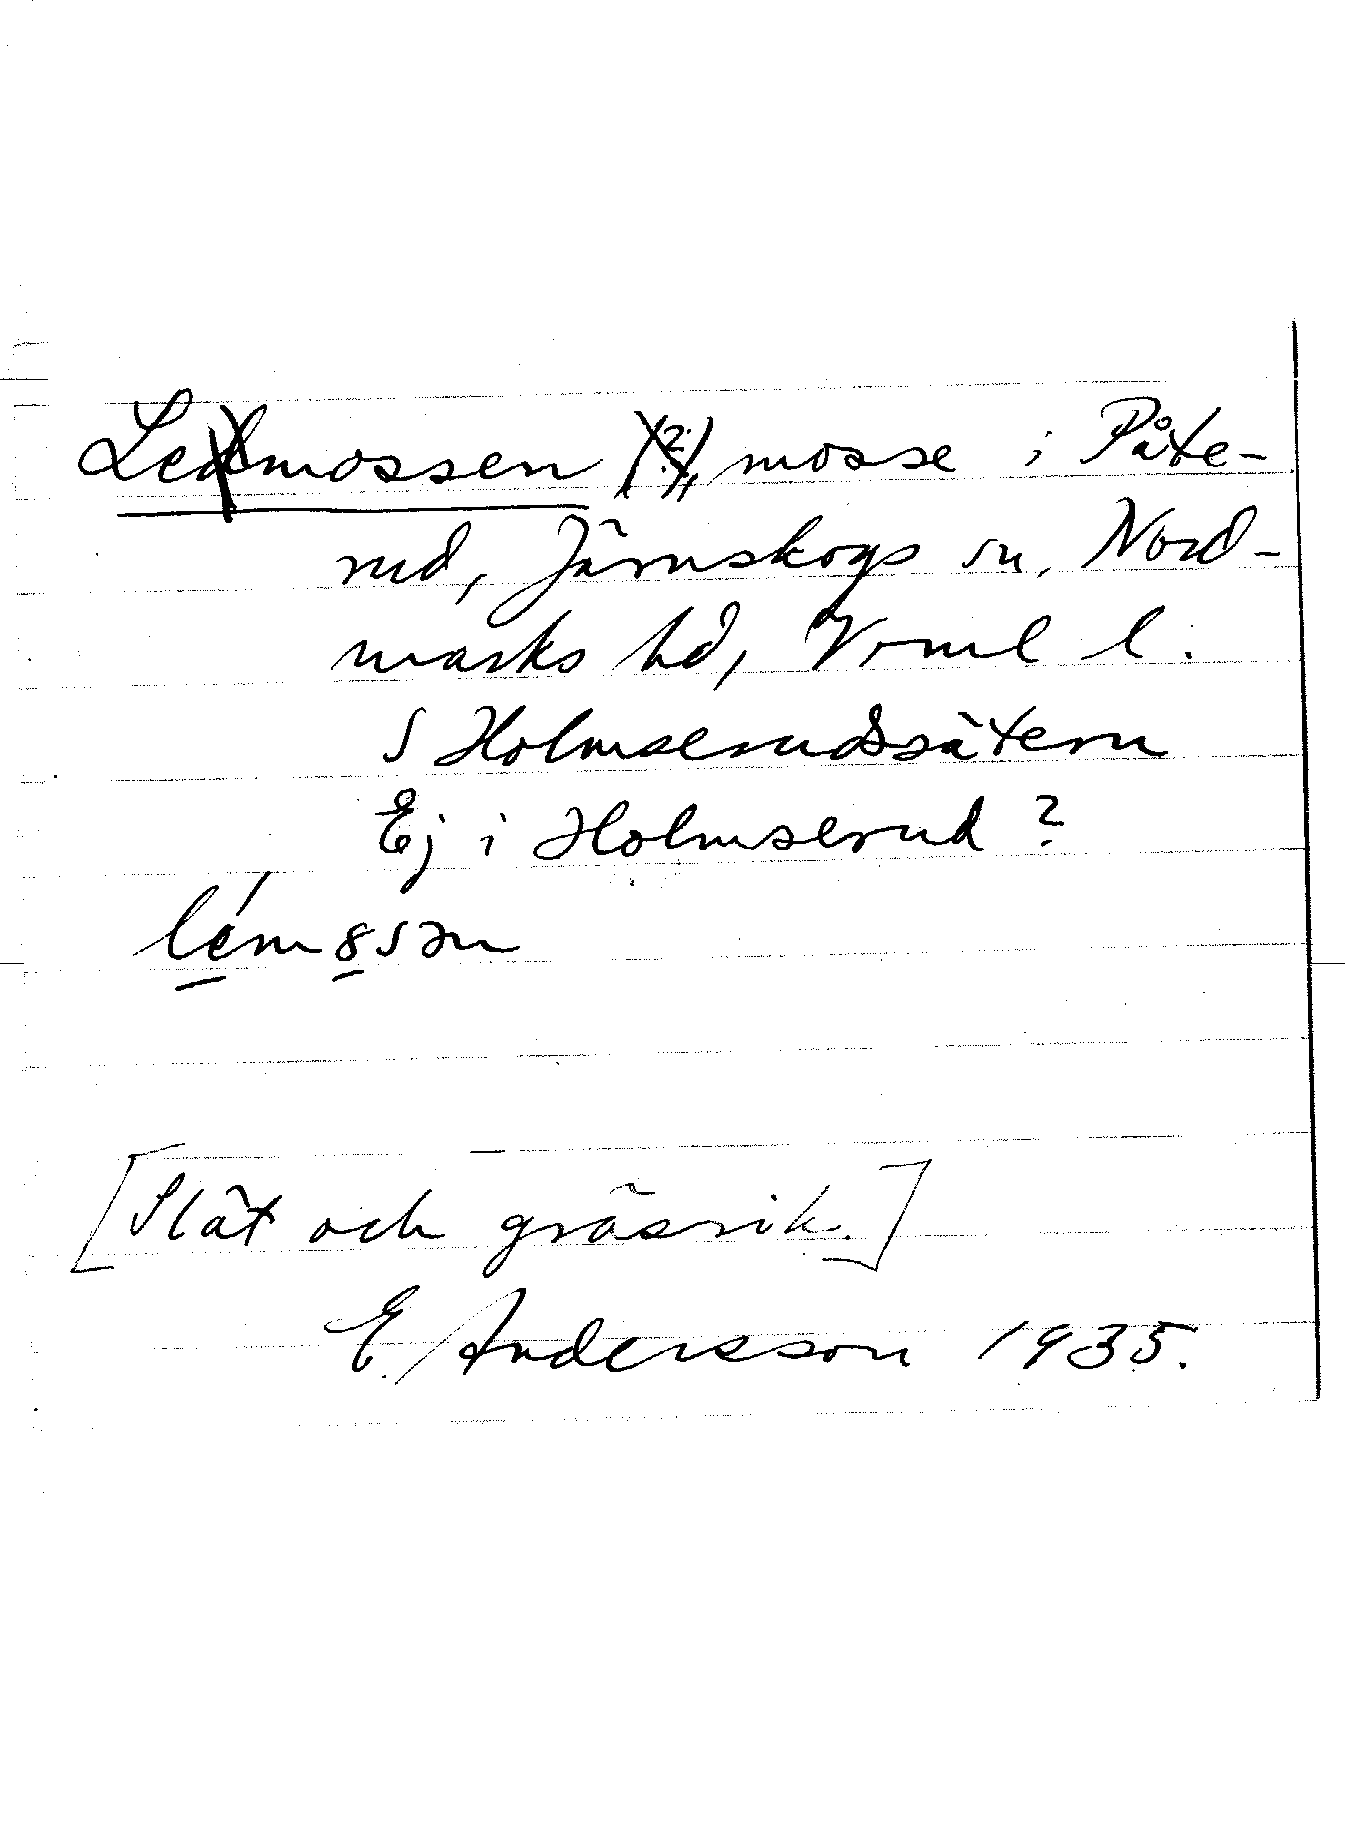 Lemossen, mosse i Påte-
rud, Järnskogs sn, Nord-
marks hd, Vrml l.
S Holmserudssätern
Ej i Holmserud ?
lémssən
[Slät och gräsrik.]
E. Andersson 1935.